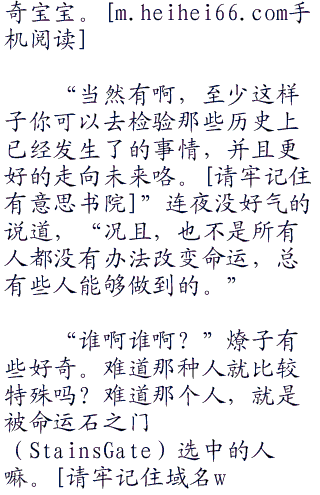 奇宝宝。[m.heihei66.com手
机阅读]
“当然有啊，至少这样
子你可以去检验那些历史上
已经发生了的事情，并且更
好的走向未来咯。[请牢记住
有意思书院]”连夜没好气的
说道，“况且，也不是所有
人都没有办法改变命运，总
有些人能够做到的。”
“谁啊谁啊？”燎子有
些好奇。难道那种人就比较
特殊吗？难道那个人，就是
被命运石之门
（StainsGate）选中的人
嘛。[请牢记住域名w